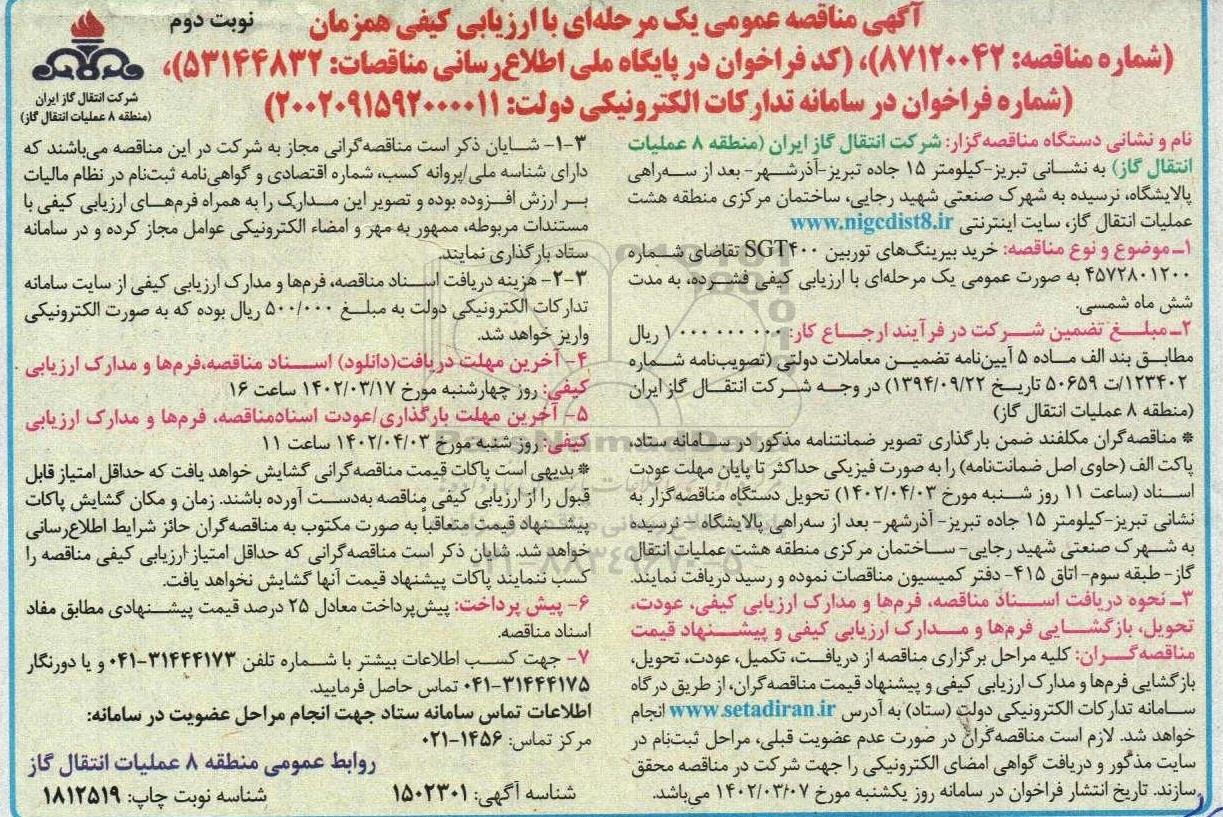 آگهی مناقصه عمومی یک مرحله‌ای با ارزیابی کیفی همزمان
نوبت دوم
(شماره مناقصه: ۸۷۱۲۰۰۴۲)، (کد فراخوان در پایگاه ملی اطلاع‌رسانی مناقصات: ۵۳۱۴۴۸۳۲)،
(شماره فراخوان در سامانه تدارکات الکترونیکی دولت: ۲۰۰۲۰۹۱۵۹۲۰۰۰۰۱۱)
شرکت انتقال گاز ایران
(منطقه ۸ عملیات انتقال گاز)
نام و نشانی دستگاه مناقصه‌گزار: شرکت انتقال گاز ایران (منطقه ۸ عملیات
انتقال گاز) به نشانی تبریز-کیلومتر ۱۵ جاده تبریز-آذرشهر- بعد از سه‌راهی
پالایشگاه، نرسیده به شهرک صنعتی شهید رجایی، ساختمان مرکزی منطقه هشت
عملیات انتقال گاز، سایت اینترنتی www.nigcdist8.ir
۱ـ موضوع و نوع مناقصه: خرید بیرینگ‌های توربین SGT۴۰۰ تقاضای شماره
۴۵۷۲۸۰۱۲۰۰ به صورت عمومی یک مرحله‌ای با ارزیابی کیفی فشرده، به مدت
شش ماه شمسی.
۲ـ مبلغ تضمین شرکت در فرآیند ارجاع کار: ۱ ۰۰۰ ۰۰۰ ۰۰۰ ریال
مطابق بند الف ماده ۵ آیین‌نامه تضمین معاملات دولتی (تصویب‌نامه شماره
۱۲۳۴۰۲/ت ۵۰۶۵۹ تاریخ ۱۳۹۴/۰۹/۲۲) در وجه شرکت انتقال گاز ایران
(منطقه ۸ عملیات انتقال گاز)
* مناقصه‌گران مکلفند ضمن بارگذاری تصویر ضمانتنامه مذکور در سامانه ستاد،
پاکت الف (حاوی اصل ضمانت‌نامه) را به صورت فیزیکی حداکثر تا پایان مهلت عودت
اسناد (ساعت ۱۱ روز شنبه مورخ ۱۴۰۲/۰۴/۰۳) تحویل دستگاه مناقصه‌گزار به
نشانی تبریز-کیلومتر ۱۵ جاده تبریز- آذرشهر- بعد از سه‌راهی پالایشگاه - نرسیده
به شهرک صنعتی شهید رجایی- ساختمان مرکزی منطقه هشت عملیات انتقال
گاز- طبقه سوم- اتاق ۴۱۵- دفتر کمیسیون مناقصات نموده و رسید دریافت نمایند.
۳ـ نحوه دریافت اسناد مناقصه، فرم‌ها و مدارک ارزیابی کیفی، عودت،
تحویل، بازگشایی فرم‌ها و مدارک ارزیابی کیفی و پیشنهاد قیمت
مناقصه‌گران: کلیه مراحل برگزاری مناقصه از دریافت، تکمیل، عودت، تحویل،
بازگشایی فرم‌ها و مدارک ارزیابی کیفی و پیشنهاد قیمت مناقصه‌گران، از طریق درگاه
سامانه تدارکات الکترونیکی دولت (ستاد) به آدرس www.setadiran.ir انجام
خواهد شد. لازم است مناقصه‌گران در صورت عدم عضویت قبلی، مراحل ثبت‌نام در
سایت مذکور و دریافت گواهی امضای الکترونیکی را جهت شرکت در مناقصه محقق
سازند. تاریخ انتشار فراخوان در سامانه روز یکشنبه مورخ ۱۴۰۲/۰۳/۰۷ می‌باشد.
۳-۱- شایان ذکر است مناقصه‌گرانی مجاز به شرکت در این مناقصه می‌باشند که
دارای شناسه ملی/پروانه کسب، شماره اقتصادی و گواهی‌نامه ثبت‌نام در نظام مالیات
بر ارزش افزوده بوده و تصویر این مدارک را به همراه فرم‌های ارزیابی کیفی با
مستندات مربوطه، ممهور به مهر و امضاء الکترونیکی عوامل مجاز کرده و در سامانه
ستاد بارگذاری نمایند.
۳-۲- هزینه دریافت اسناد مناقصه، فرم‌ها و مدارک ارزیابی کیفی از سایت سامانه
تدارکات الکترونیکی دولت به مبلغ ۵۰۰/۰۰۰ ریال بوده که به صورت الکترونیکی
واریز خواهد شد.
۴- آخرین مهلت دریافت(دانلود) اسناد مناقصه،فرم‌ها و مدارک ارزیابی
کیفی: روز چهارشنبه مورخ ۱۴۰۲/۰۳/۱۷ ساعت ۱۶
۵- آخرین مهلت بارگذاری/عودت اسنادمناقصه، فرم‌ها و مدارک ارزیابی
کیفی: روز شنبه مورخ ۱۴۰۲/۰۴/۰۳ ساعت ۱۱
* بدیهی است پاکات قیمت مناقصه‌گرانی گشایش خواهد یافت که حداقل امتیاز قابل
قبول را از ارزیابی کیفی مناقصه به‌دست آورده باشند. زمان و مکان گشایش پاکات
پیشنهاد قیمت متعاقباً به صورت مکتوب به مناقصه‌گران حائز شرایط اطلاع‌رسانی
خواهد شد. شایان ذکر است مناقصه‌گرانی که حداقل امتیاز ارزیابی کیفی مناقصه را
کسب ننمایند پاکات پیشنهاد قیمت آنها گشایش نخواهد یافت.
۶- پیش پرداخت: پیش‌پرداخت معادل ۲۵ درصد قیمت پیشنهادی مطابق مفاد
اسناد مناقصه.
۷- جهت کسب اطلاعات بیشتر با شماره تلفن ۳۱۴۴۴۱۷۳-۰۴۱ و یا دورنگار
۳۱۴۴۴۱۷۵-۰۴۱ تماس حاصل فرمایید.
اطلاعات تماس سامانه ستاد جهت انجام مراحل عضویت در سامانه:
مرکز تماس: ۱۴۵۶-۰۲۱
روابط عمومی منطقه ۸ عملیات انتقال گاز
شناسه آگهی: ۱۵۰۲۳۰۱
شناسه نوبت چاپ: ۱۸۱۲۵۱۹